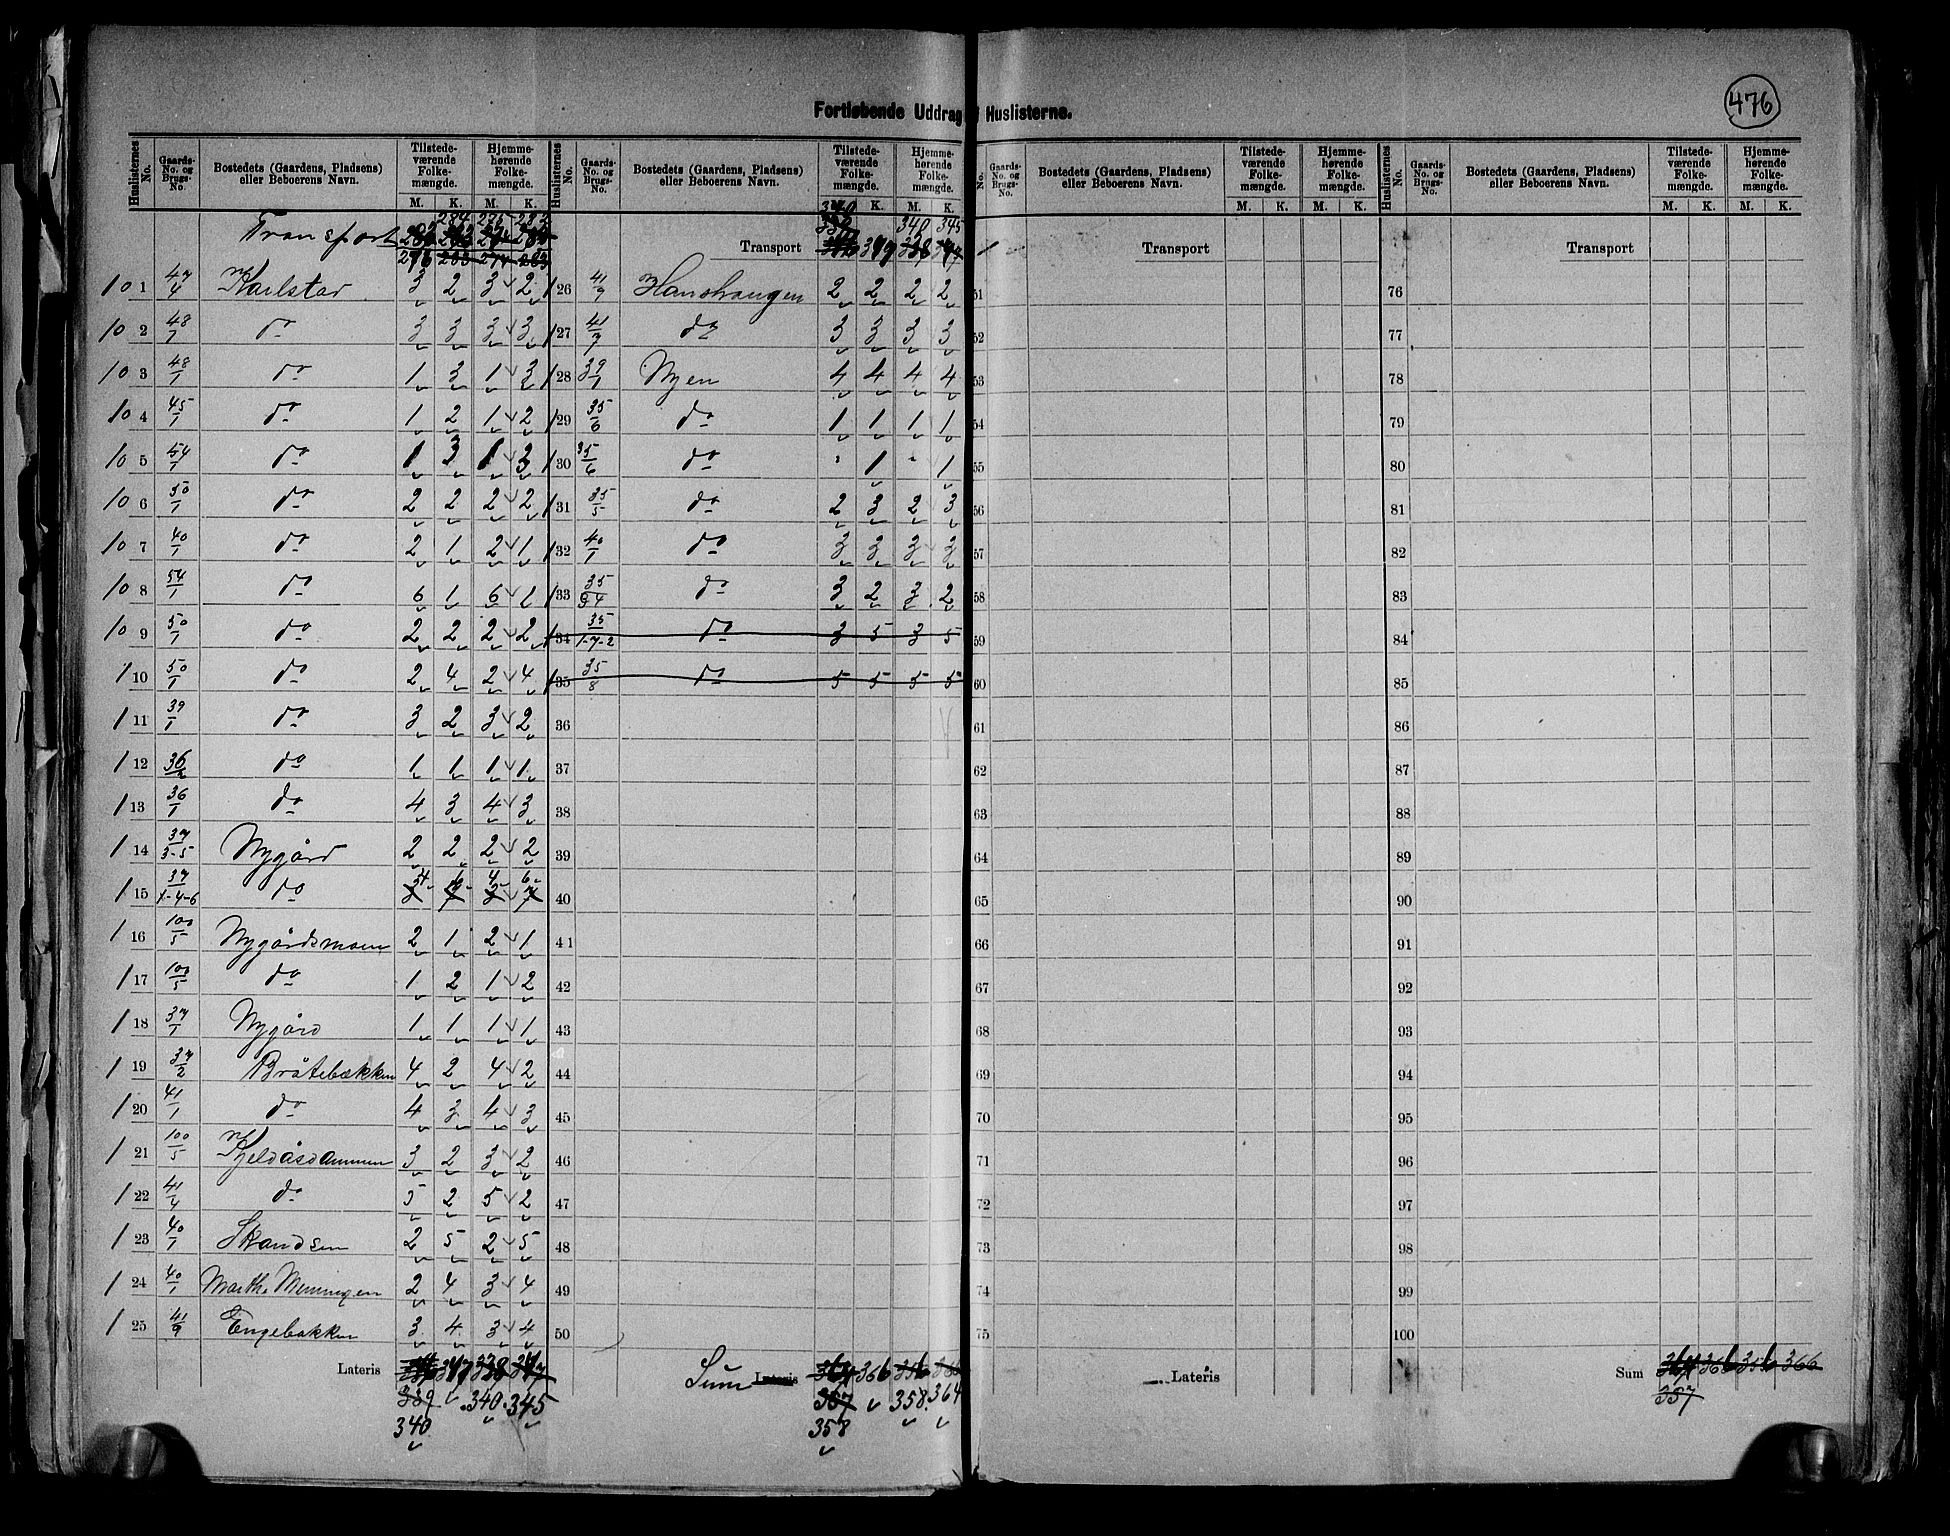 476
Fortløbende Uddrag Huslisterne.
Huslisternes No. | Gaards-No. og Brugs-No. | Bostedets (Gaardens, Pladsens) eller Beboerens Navn. | Tilstedeværende Folkemængde. | Hjemmehørende Folkemængde.
M. K. M. K.
Transport 284 275 282
101 47/4 Karlstad 3 2 3 2
102 48/7 do 3 3 3 3
103 48/1 do 1 3 1 3
104 45/1 do 1 2 1 2
105 54/1 do 1 3 1 3
106 50/1 do 2 2 2 2
107 40/1 do 2 1 2 1
108 54/1 do 6 1 6 1
109 50/1 do 2 2 2 2
110 50/1 do 2 4 2 4
111 39/1 do 3 2 3 2
112 36/2 do 1 1 1 1
113 36/1 do 4 3 4 3
114 37/3-5 Nygård 2 2 2 2
115 37/1-4-6 do 4 6 4 6
116 100/5 Nygårdsmoen 2 1 2 1
117 100/5 do 1 2 1 2
118 37/1 Nygård 1 1 1 1
119 37/2 Bråtebækken 4 2 4 2
120 41/1 do 4 3 4 3
121 100/5 Kjeldåsdammen 3 2 3 2
122 41/4 do 5 2 5 2
123 40/1 Skandsen 2 5 2 5
124 40/1 Marthe 2 4 3 4
125 41/9 Engebakken 3 4 3 4
Lateris 347 338 347
339 340. 345
340
Huslisternes No. | Gaards-No. og Brugs-No. | Bostedets (Gaardens, Pladsens) eller Beboerens Navn. | Tilstedeværende Folkemængde. | Hjemmehørende Folkemængde.
M. K. M. K.
340 340 345
Transport 347 338 347
126 41/9 Hanshaugen 2 2 2 2
127 41/9 do 3 3 3 3
128 39/1 Myen 4 4 4 4
129 35/6 do 1 1 1 1
130 35/6 do " 1 " 1
131 35/5 do 2 3 2 3
132 40/1 do 3 3 3 3
133 35/34 do 3 2 3 2
134 35/1-7-2 do 3 5 3 5
135 35/8 do 5 5 5 5
36
37
38
39
40
41
42
43
44
45
46
47
48
49
50
Sum Lateris 364 366 356 366
357 358. 364
358
No. | Gaards-No. og Brugs-No. | Bostedets (Gaardens, Pladsens) eller Beboerens Navn. | Tilstedeværende Folkemængde. | Hjemmehørende Folkemængde.
M. K. M. K.
Transport
51
52
53
54
55
56
57
58
59
60
61
62
63
64
65
66
67
68
69
70
71
72
73
74
75
Lateris
Huslisternes No. | Gaards-No. og Brugs-No. | Bostedets (Gaardens, Pladsens) eller Beboerens Navn. | Tilstedeværende Folkemængde. | Hjemmehørende Folkemængde.
M. K. M. K.
Transport
76
77
78
79
80
81
82
83
84
85
86
87
88
89
90
91
92
93
94
95
96
97
98
99
100
Sum 364 366 356 366
357